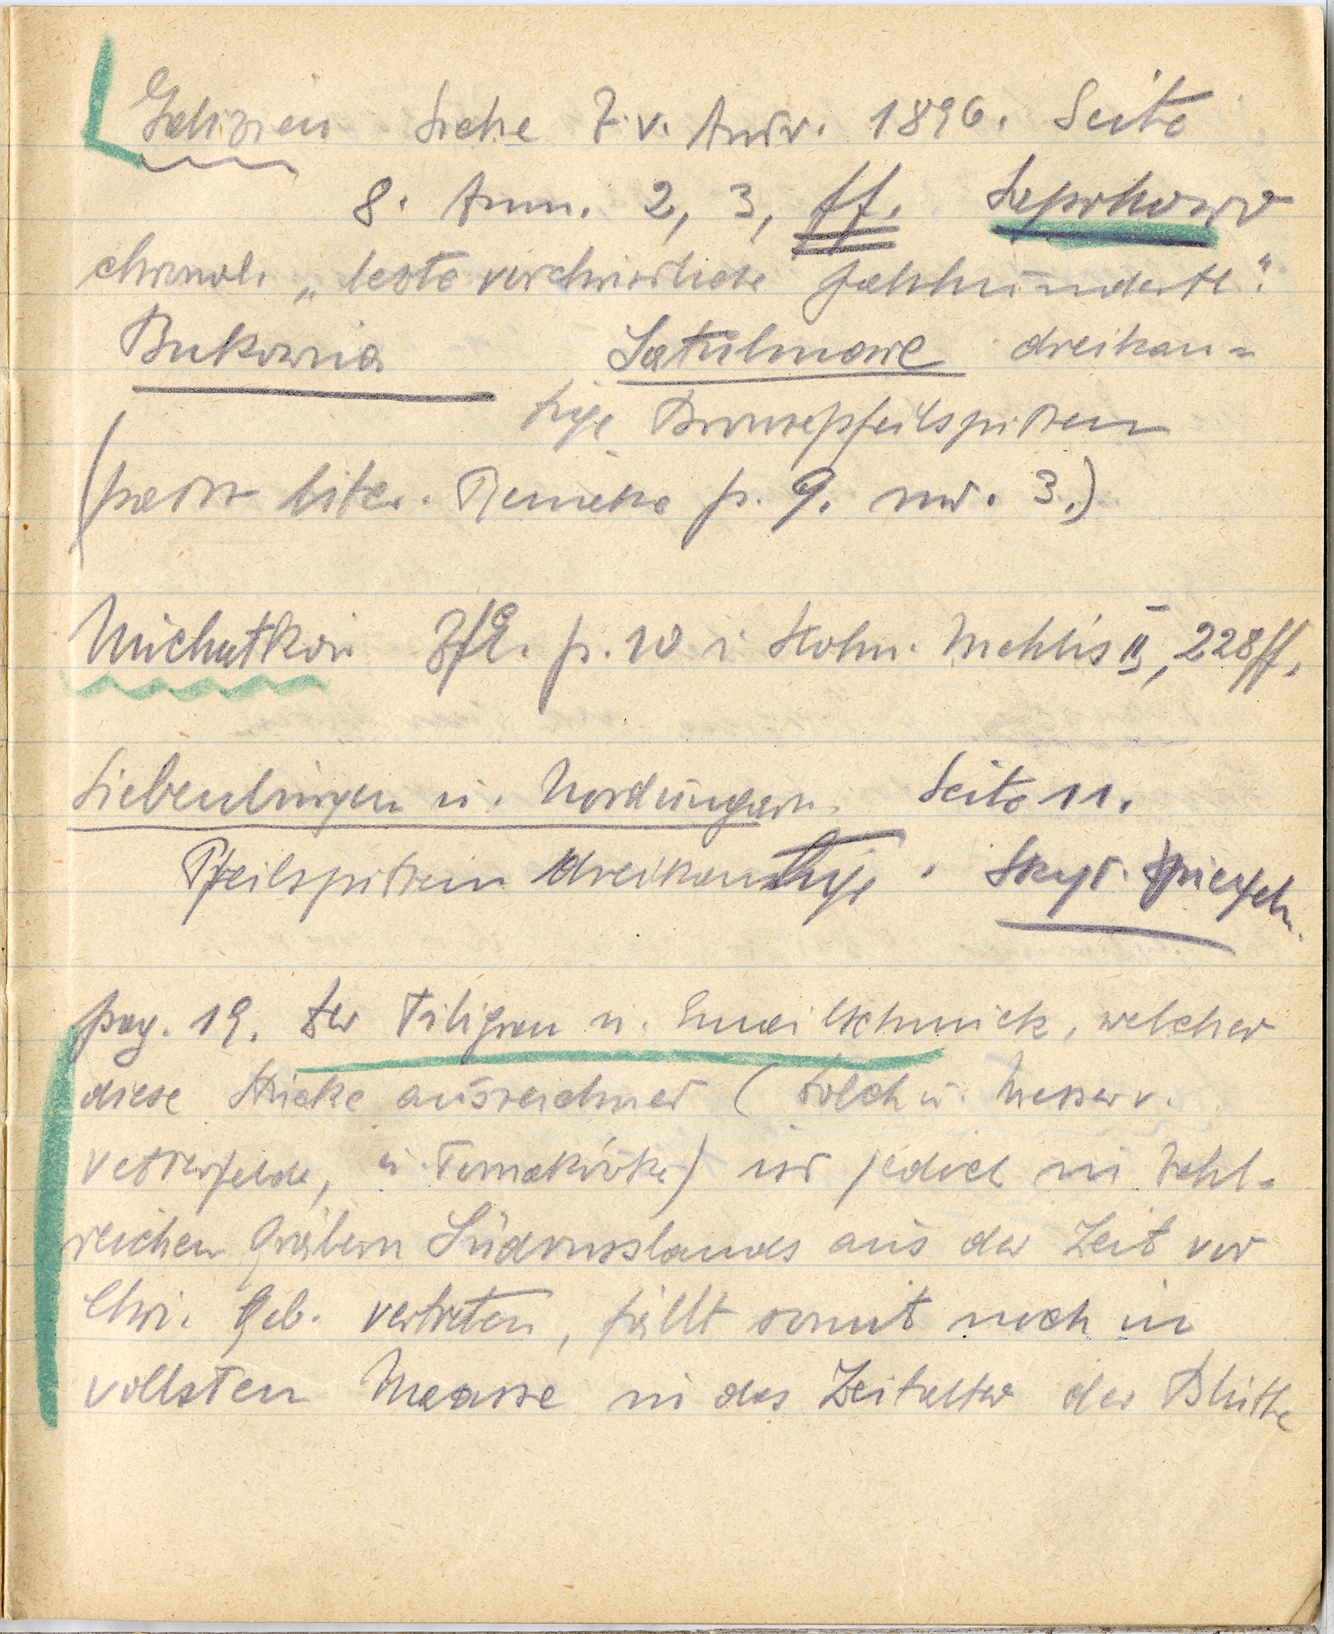 Galizien siehe Z. v. Andr. 1896. Seite
8. Anm. 2, 3, ff. Sapohowo
chronol. „letzte vorchristliche Jahrhunderte".
Bukowina Satulmare dreikan=
tige Bronzepfeilspitzen
Liter. Reinecke p. 9. nr. 3.)
Michałkow ZfE. p. 10 i Hohn. Mehlis II, 228ff.
Siebenbürgen u. Nordungarn. Seite 11.
Pfeilspitzen dreikantige. Skyt. Spiegeln.
pag. 19. Der Filigran u. Emailschmuck, welcher
diese Stücke auszeichnet (Dolch u. Messer v.
Vettersfelde, u. Tomakówka) ist jedoch in zahl=
reichen Gräbern Südrusslands aus der Zeit vor
Chri. Geb. vertreten, fällt somit noch in
vollsten Maasse in das Zeitalter der Blüthe